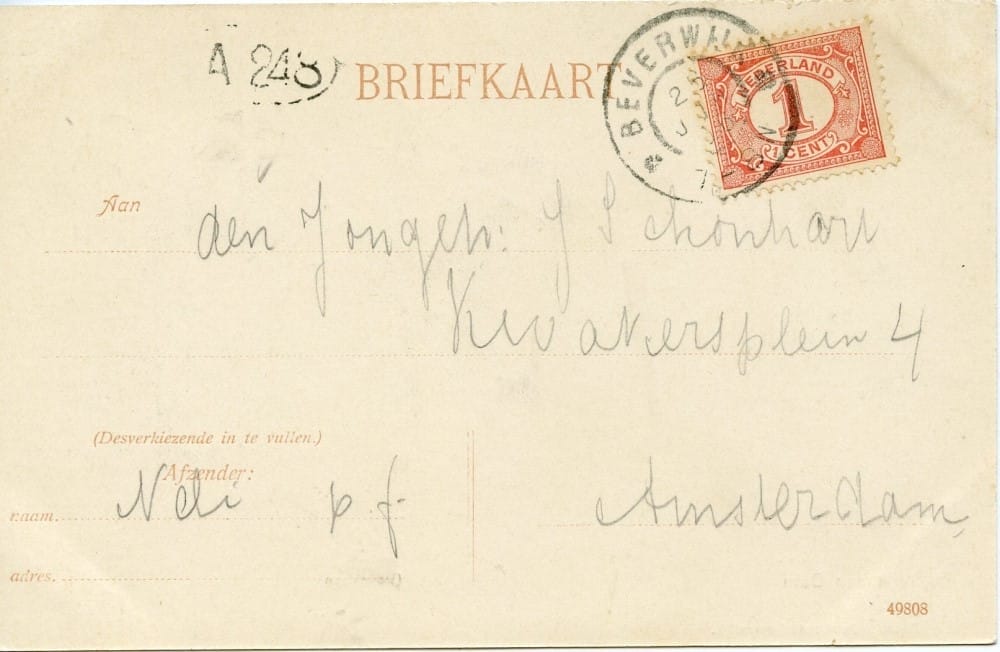 A 248
BRIEFKAART
BEVERWIJK
NEDERLAND
1
1 CENT
Aan
den Jongeh: J Schonhart
Kwakersplein 4
(Desverkiezende in te vullen.)
Afzender:
naam.
p f
Amsterdam
adres.
49808